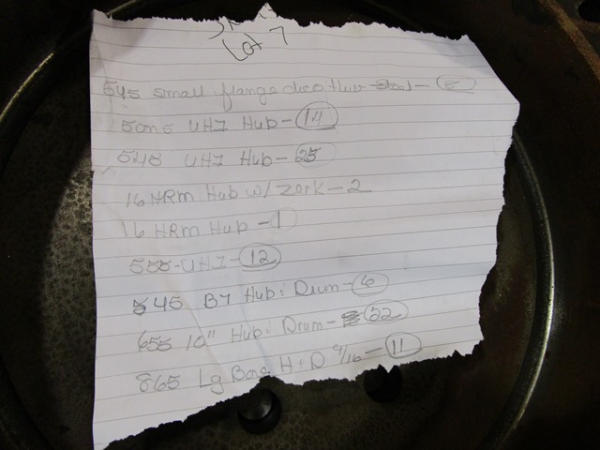 Lot 7
545 small flange dico Hub - 5
50n5 UHI Hub - 14
545 UHI Hub - 25
16 HRM Hub w/ Zerk - 2
16 HRM Hub - 1
555-UHI - 12
545 B7 Hub : Drum - 6
655 10" Hub : Drum - 22
865 Lg Bore H : D 9/16 - 11